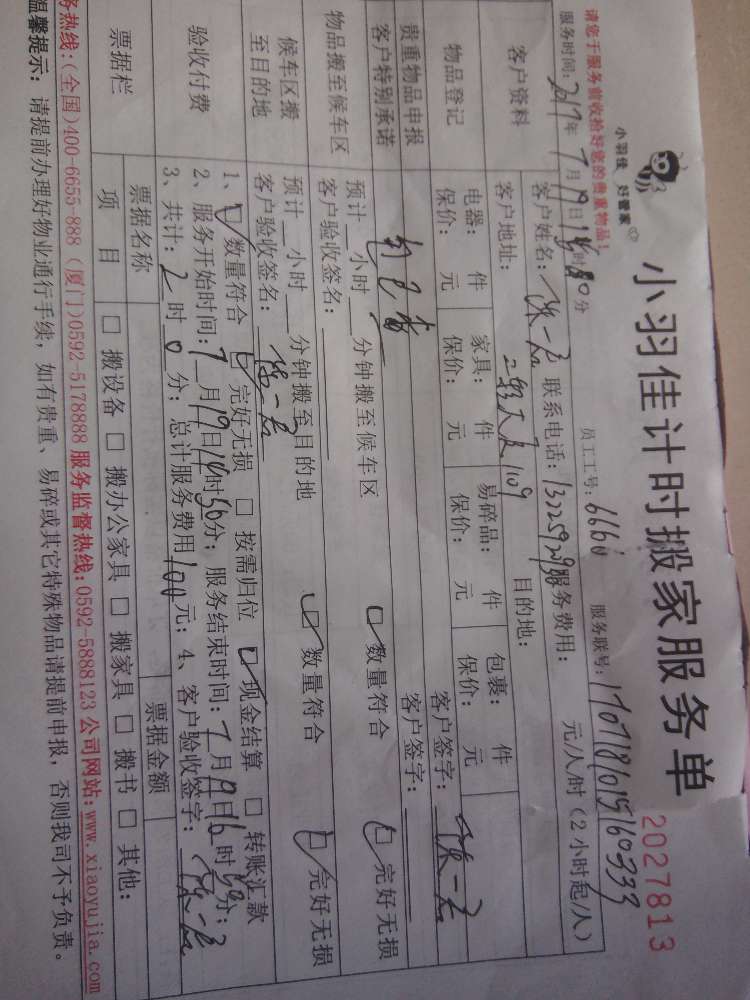 小羽佳 好管家
小羽佳计时搬家服务单 2027813
请您于服务前收拾好您的贵重物品!
员工工号:6660 服务联号:1707181015160333
服务时间:2017年7月19日14时 分
客户资料
客户姓名: 联系电话: 服务费用: 元/人/时(2小时起/人)
客户地址: 109 目的地:
物品登记
电器: 件 家具: 件 易碎品: 件 包裹: 件
保价: 元 保价: 元 保价: 元 保价: 元
客户签字:
贵重物品申报
客户特别承诺
客户签字:
物品搬至候车区
预计 小时 分钟搬至候车区 数量符合 完好无损
客户验收签名:
候车区搬
至目的地
预计 小时 分钟搬至目的地 数量符合 完好无损
客户验收签名:
验收付费
1、 数量符合 完好无损 按需归位 现金结算 转账汇款
2、服务开始时间:7月19日14时50分;服务结束时间:7月19日16时 分;
3、共计:2时0分;总计服务费用100元;4、客户验收签字:
票据栏
票据名称 票据金额
项 目 搬设备 搬办公家具 搬家具 搬书 其他:
务热线:(全国)400-6655-888 (厦门)0592-5178888 服务监督热线:0592-5888123 公司网站:www.xiaoyujia.com
温馨提示: 请提前办理好物业通行手续,如有贵重、易碎或其它特殊物品请提前申报,否则我司不予负责。